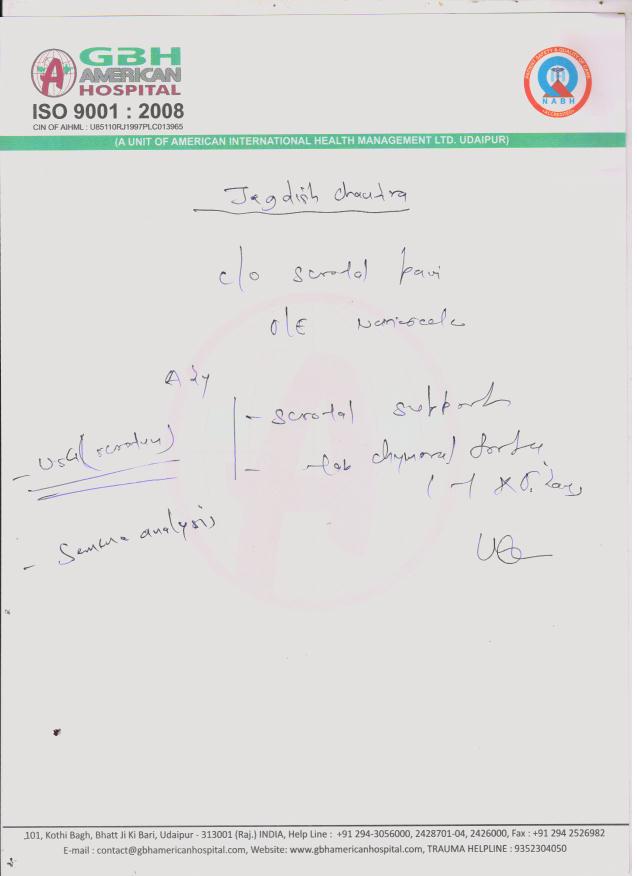 GBH
AMERICAN
HOSPITAL
ISO 9001 : 2008
CIN OF AIHML : U85110RJ1997PLC013965
PATIENT SAFETY & QUALITY OF CARE
NABH
ACCREDITATION
(A UNIT OF AMERICAN INTERNATIONAL HEALTH MANAGEMENT LTD. UDAIPUR)
Jagdish Chandra
c/o scrotal pain
O/E varicocele
Adv
- scrotal support
- USG (scrotum)
- Tab chymoral forte
1 - 1 x 5 days
- Semen analysis
101, Kothi Bagh, Bhatt Ji Ki Bari, Udaipur - 313001 (Raj.) INDIA, Help Line : +91 294-3056000, 2428701-04, 2426000, Fax : +91 294 2526982
E-mail : contact@gbhamericanhospital.com, Website: www.gbhamericanhospital.com, TRAUMA HELPLINE : 9352304050